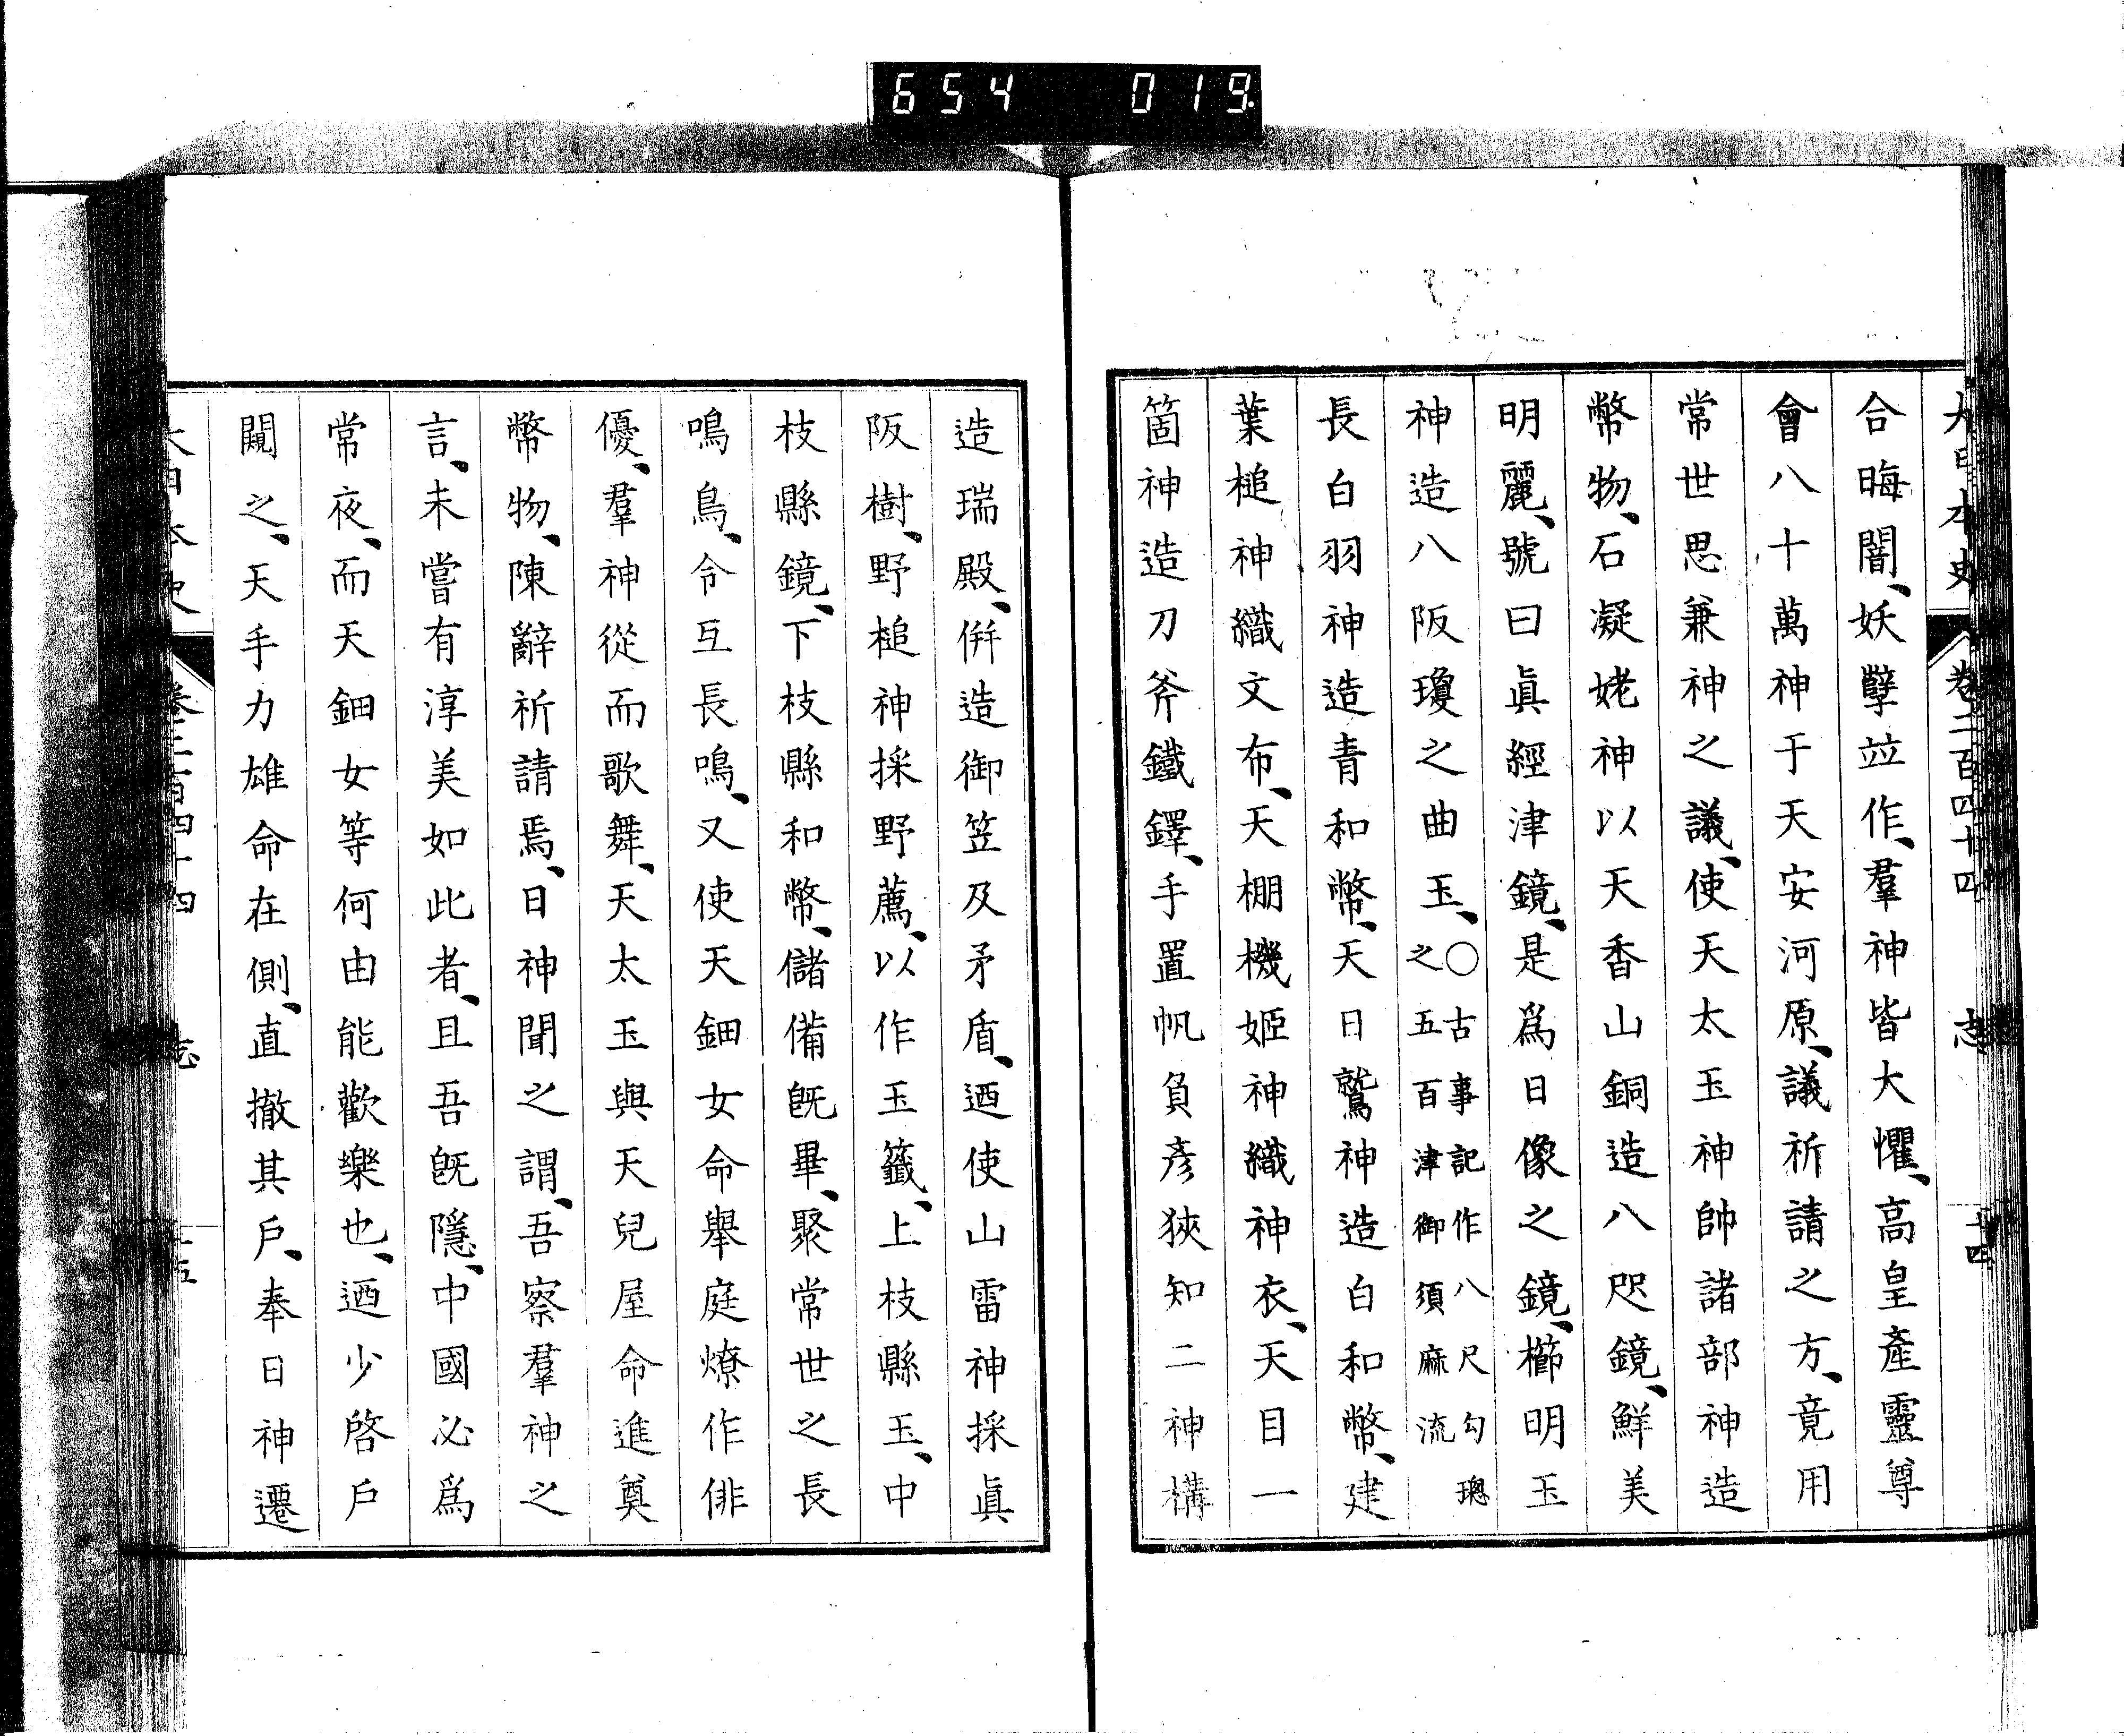 654 019
大日本史 卷二百四十四 志 十四
合晦闇、妖孼竝作、羣神皆大懼、高皇產靈尊
會八十萬神于天安河原、議祈請之方、竟用
常世思兼神之議、使天太玉神帥諸部神造
幣物、石凝姥神以天香山銅造八咫鏡、鮮美
明麗、號曰眞經津鏡、是爲日像之鏡、櫛明玉
神造八阪瓊之曲玉、○古事記作八尺勾璁之五百津御須麻流
長白羽神造青和幣、天日鷲神造白和幣、建
葉槌神織文布、天棚機姬神織神衣、天目一
箇神造刀斧鐵鐸、手置帆負彥狹知二神構
造瑞殿、倂造御笠及矛盾、迺使山雷神採眞
阪樹、野槌神採野薦、以作玉籤、上枝縣玉、中
枝縣鏡、下枝縣和幣、儲備旣畢、聚常世之長
鳴鳥、令互長鳴、又使天鈿女命舉庭燎作俳
優、羣神從而歌舞、天太玉與天兒屋命進奠
幣物、陳辭祈請焉、日神聞之謂、吾察羣神之
言、未嘗有淳美如此者、且吾旣隱、中國必爲
常夜、而天鈿女等何由能歡樂也、迺少啓戶
闚之、天手力雄命在側、直撤其戶、奉日神遷
大日本史 卷二百四十四 志 十五